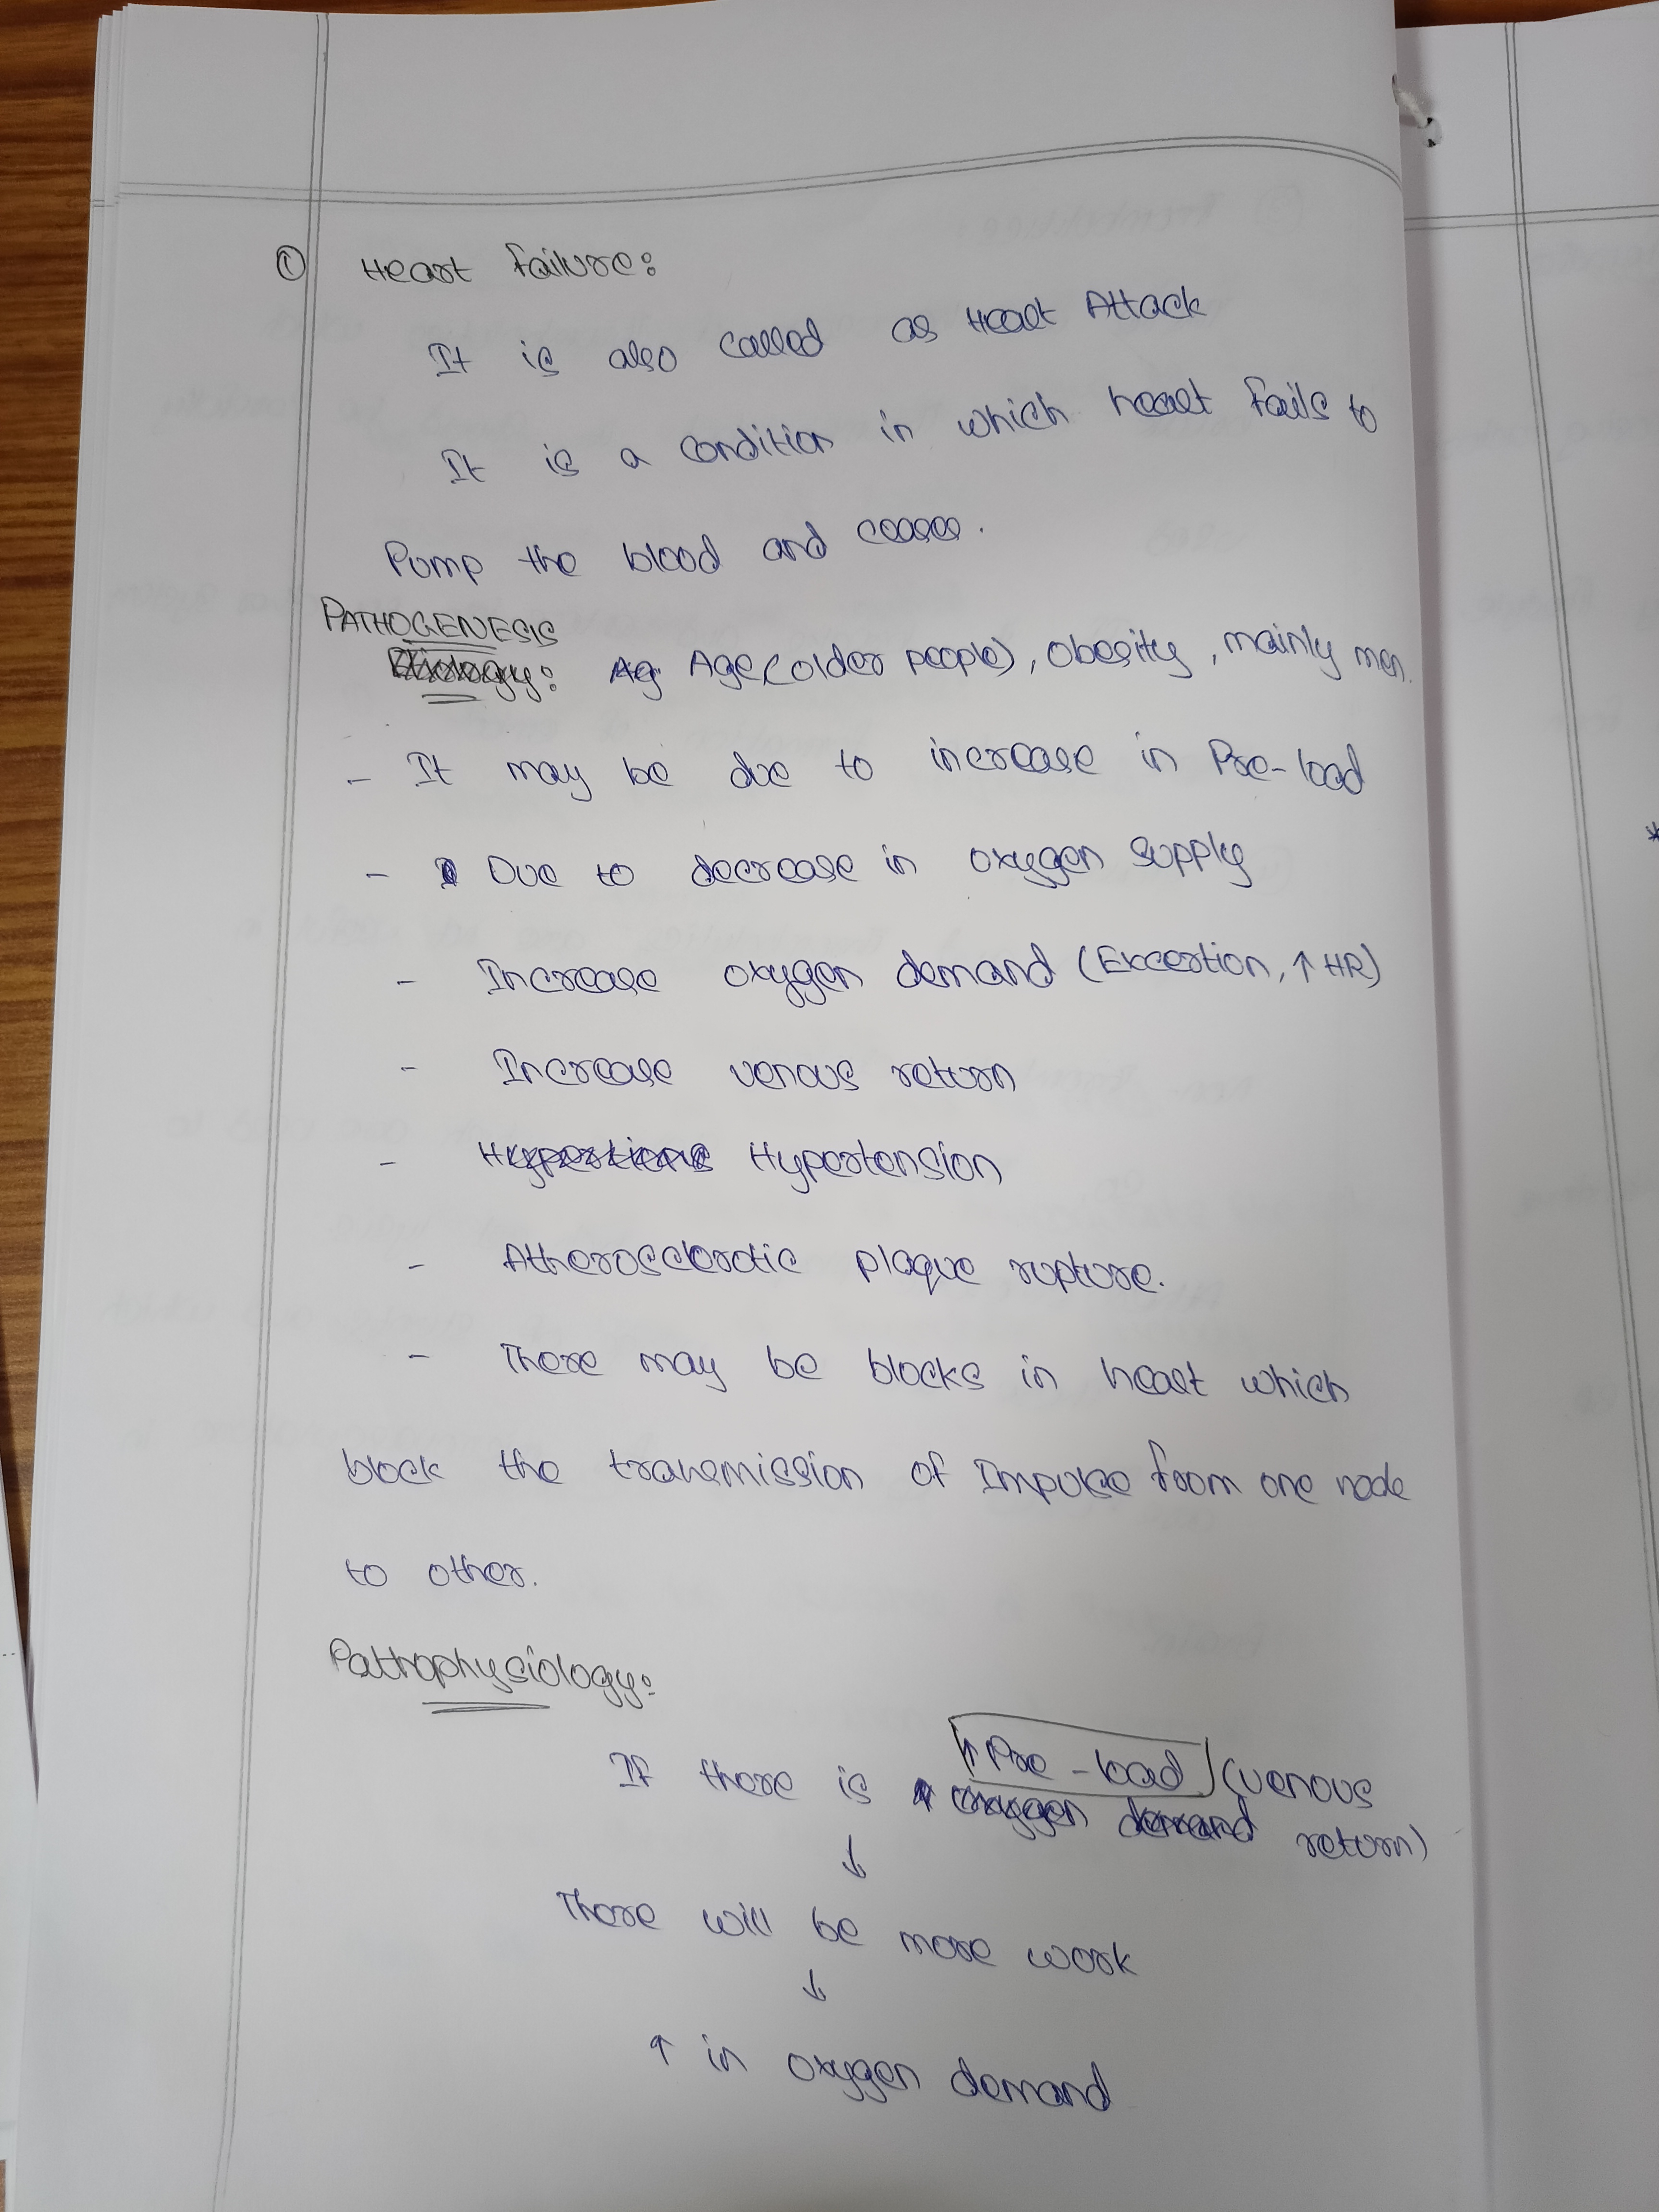 ① Heart failure:
It is also called as Heart Attack
It is a condition in which heart fails to
Pump the blood and ceases.
PATHOGENESIS
Etiology: Ag Age(older people), Obesity, mainly men.
- It may be due to increase in Pre-load
- Due to decrease in oxygen supply
- Increase oxygen demand (Excertion, ↑ HR)
- Increase venous return
- Hypertension
- Atherosclerotic plaque rupture.
- There may be blocks in heart which
block the transmission of Impulse from one node
to other.
Pathophysiology:
If there is ↑ Pre-load (venous
oxygen demand return)
↓
There will be more work
↓
↑ in oxygen demand